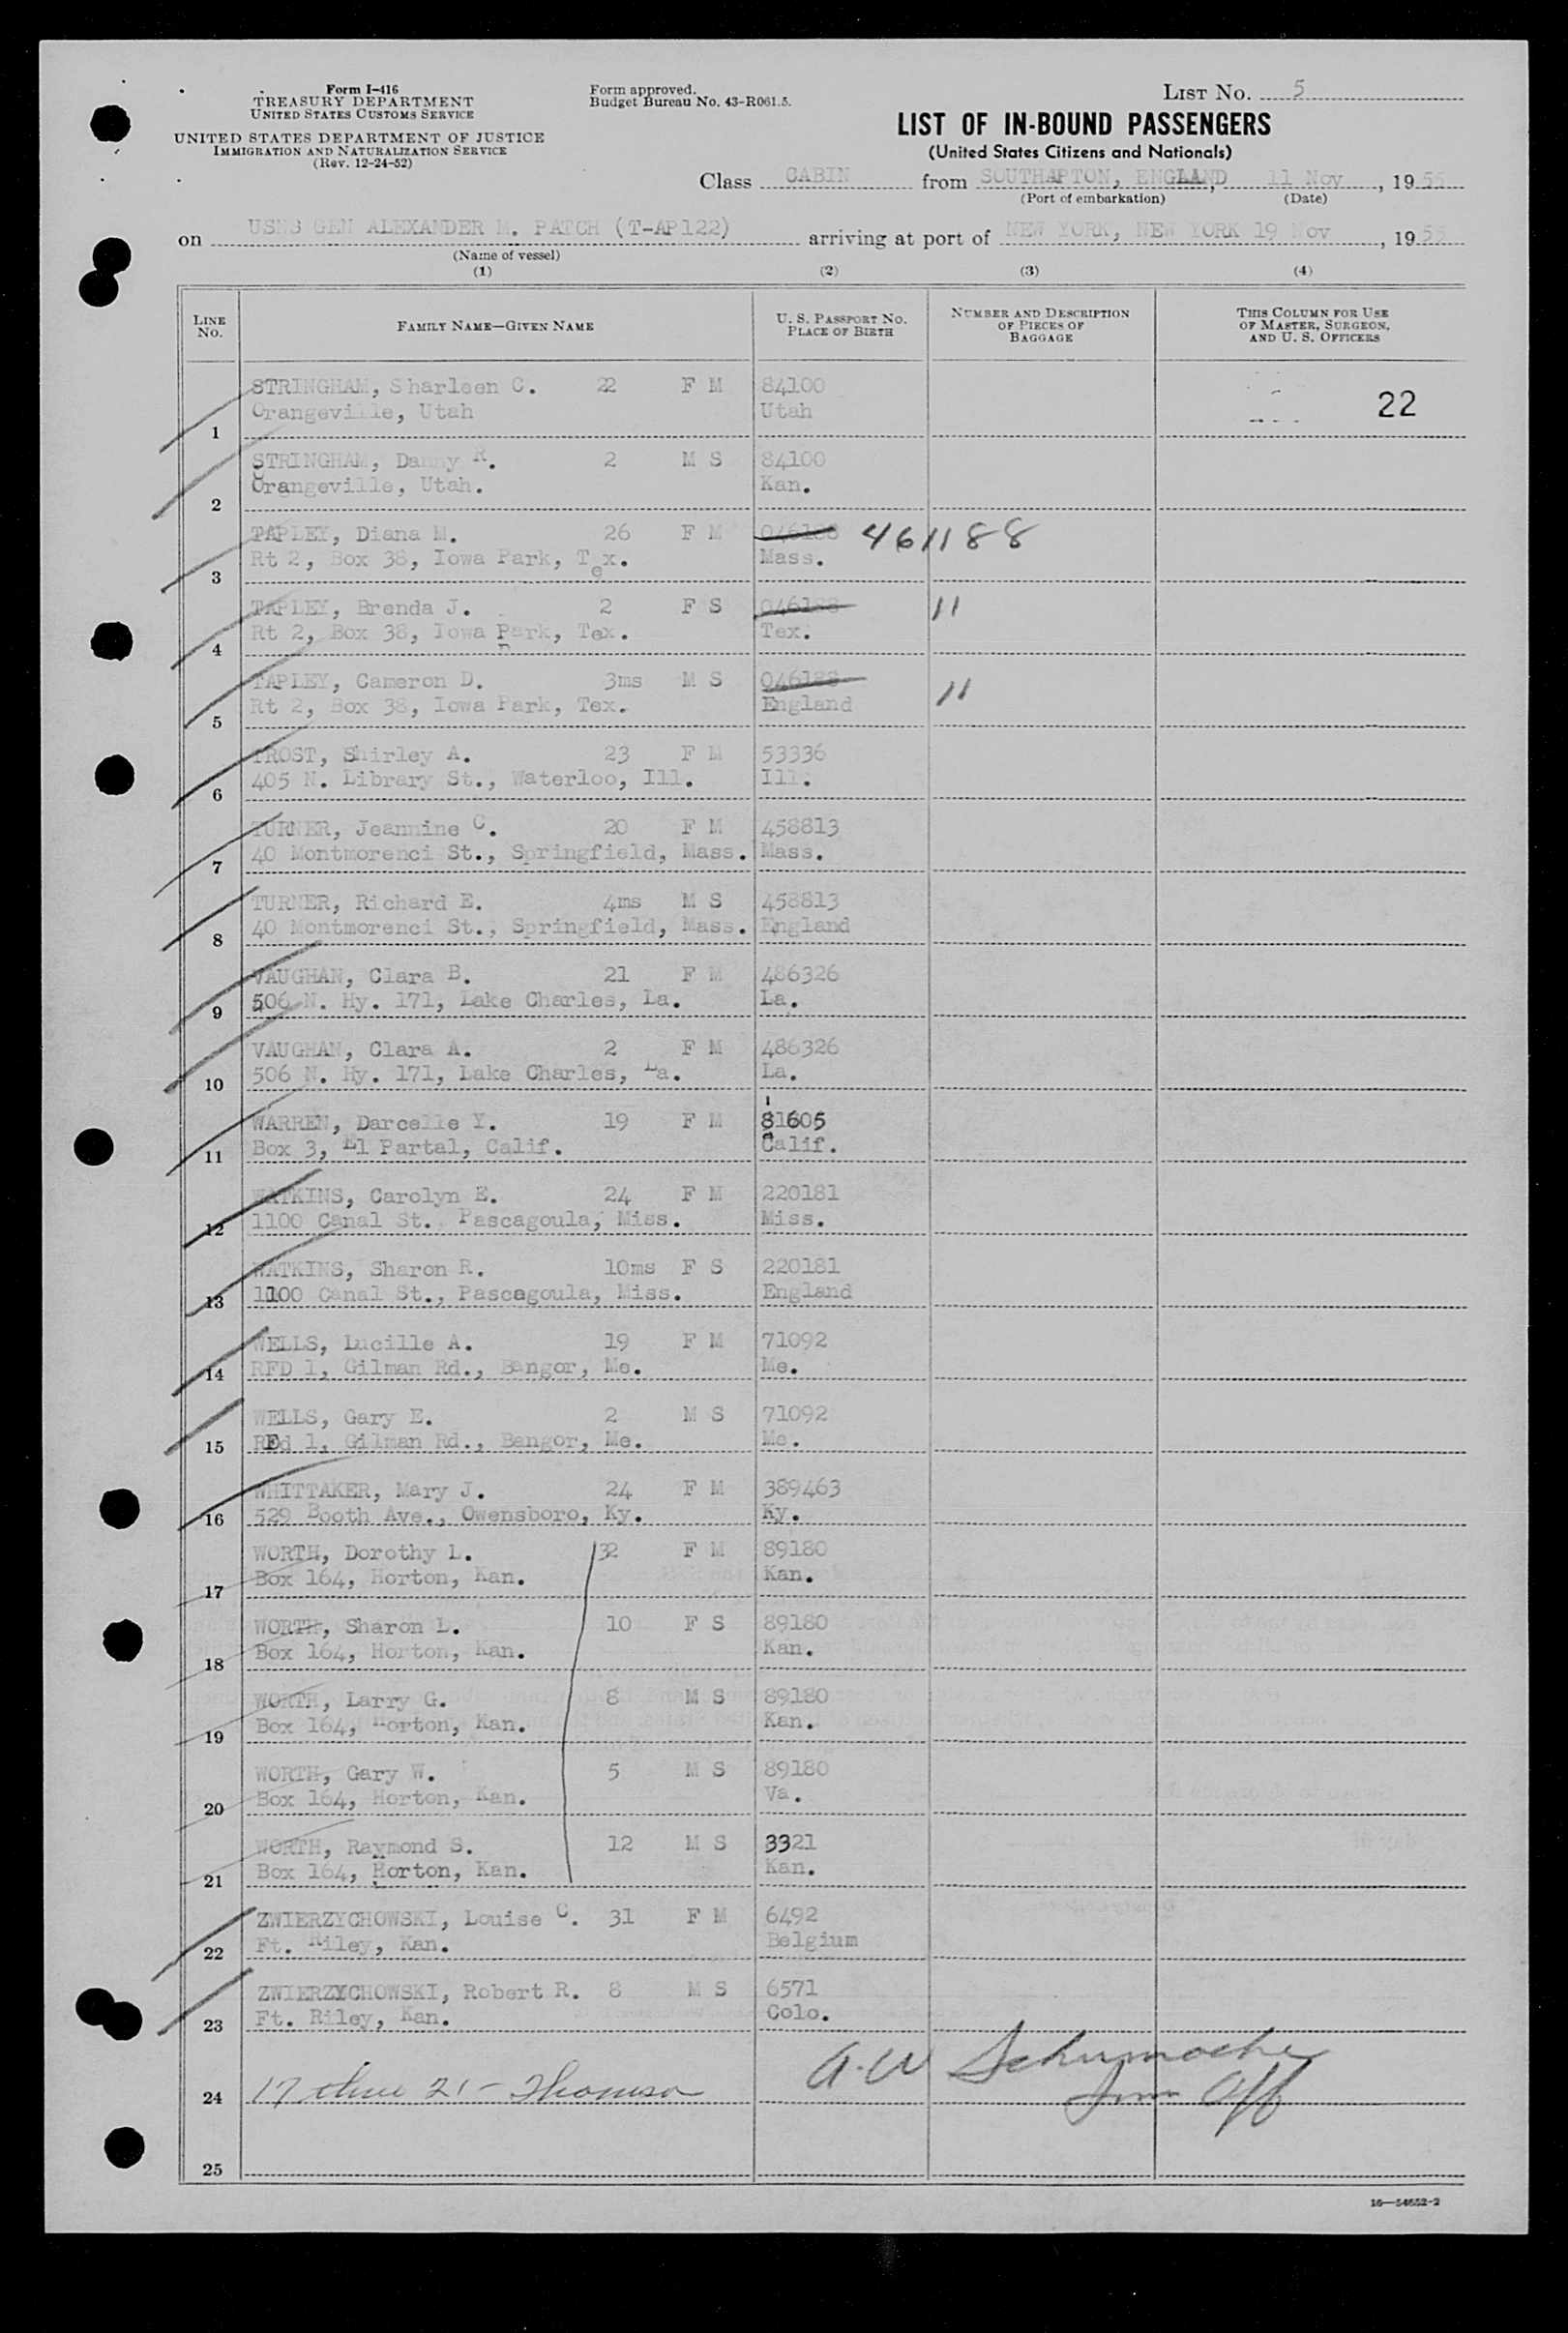 Form I-416
TREASURY DEPARTMENT
UNITED STATES CUSTOMS SERVICE
UNITED STATES DEPARTMENT OF JUSTICE
IMMIGRATION AND NATURALIZATION SERVICE
(Rev. 12-24-52)
Form approved.
Budget Bureau No. 43-R061.5.
LIST NO. 5
LIST OF IN-BOUND PASSENGERS
(United States Citizens and Nationals)
Class CABIN from SOUTHAPTON, ENGLAND, 11 Nov, 1955
(Port of embarkation) (Date)
on USNS GEN ALEXANDER M. PATCH (T-AP122) arriving at port of NEW YORK, NEW YORK 19 Nov, 1955
(Name of vessel)
(1) (2) (3) (4)
LINE NO. FAMILY NAME—GIVEN NAME U. S. PASSPORT NO. PLACE OF BIRTH NUMBER AND DESCRIPTION OF PIECES OF BAGGAGE THIS COLUMN FOR USE OF MASTER, SURGEON, AND U. S. OFFICERS
STRINGHAM, Sharleen C. 22 F M 84100 22
1 Orangeville, Utah Utah
STRINGHAM, Danny R. 2 M S 84100
2 Orangeville, Utah. Kan.
TAPLEY, Diana M. 26 F M 046188 461188
3 Rt 2, Box 38, Iowa Park, Tex. Mass.
TAPLEY, Brenda J. 2 F S 046188 11
4 Rt 2, Box 38, Iowa Park, Tex. Tex.
TAPLEY, Cameron D. 3ms M S 046188 11
5 Rt 2, Box 38, Iowa Park, Tex. England
TROST, Shirley A. 23 F M 53336
6 405 N. Library St., Waterloo, Ill. Ill.
TURNER, Jeannine C. 20 F M 458813
7 40 Montmorenci St., Springfield, Mass. Mass.
TURNER, Richard E. 4ms M S 458813
8 40 Montmorenci St., Springfield, Mass. England
VAUGHAN, Clara B. 21 F M 486326
9 506 N. Hy. 171, Lake Charles, La. La.
VAUGHAN, Clara A. 2 F M 486326
10 506 N. Hy. 171, Lake Charles, La. La.
WARREN, Darcelle Y. 19 F M 81605
11 Box 3, El Partal, Calif. Calif.
WATKINS, Carolyn E. 24 F M 220181
12 1100 Canal St. Pascagoula, Miss. Miss.
WATKINS, Sharon R. 10ms F S 220181
13 1100 Canal St., Pascagoula, Miss. England
WELLS, Lucille A. 19 F M 71092
14 RFD 1, Gilman Rd., Bangor, Me. Me.
WELLS, Gary E. 2 M S 71092
15 RFd 1, Gilman Rd., Bangor, Me. Me.
WHITTAKER, Mary J. 24 F M 389463
16 529 Booth Ave., Owensboro, Ky. Ky.
WORTH, Dorothy L. 32 F M 89180
17 Box 164, Horton, Kan. Kan.
WORTH, Sharon L. 10 F S 89180
18 Box 164, Horton, Kan. Kan.
WORTH, Larry G. 8 M S 89180
19 Box 164, Horton, Kan. Kan.
WORTH, Gary W. 5 M S 89180
20 Box 164, Horton, Kan. Va.
WORTH, Raymond S. 12 M S 3321
21 Box 164, Horton, Kan. Kan.
ZWIERZYCHOWSKI, Louise C. 31 F M 6492
22 Ft. Riley, Kan. Belgium
ZWIERZYCHOWSKI, Robert R. 8 M S 6571
23 Ft. Riley, Kan. Colo.
A.W Schumacher
24 17 thru 21 - Thomson Imm Off
25
16—54652-2